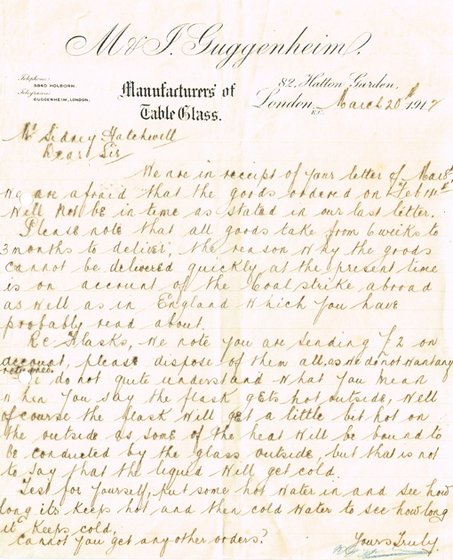 M & J. Guggenheim.
Telephone:
5840 HOLBORN.
Telegrams:
GUGGENHEIM, LONDON.
Manufacturers of
Table Glass.
82, Hatton Garden,
London, March 20th 1912
E.C.
Mr Sidney Hatchwell
Dear Sir
We are in receipt of your letter of Mar 8th
we are afraid that the goods ordered on Feb 14th
will not be in time as stated in our last letter.
Please note that all goods take from 6 weeks to
3 months to deliver, the reason why the goods
cannot be delivered quickly at the present time
is on account of the Coal strike abroad
as well as in England which you have
probably read about.
Re Flasks, we note you are sending £2 on
account, please dispose of them all, as we do not want any
returned.
I do not quite understand what you mean
when you say the flask gets hot outside, well
of course the flask will get a little bit hot on
the outside as some of the heat will be bound to
be conducted by the glass outside but that is not
to say that the liquid will get cold.
Test for yourself, put some hot water in and see how
long it keeps hot and then cold water to see how long
it keeps cold.
Cannot you get any other orders?
Yours Truly